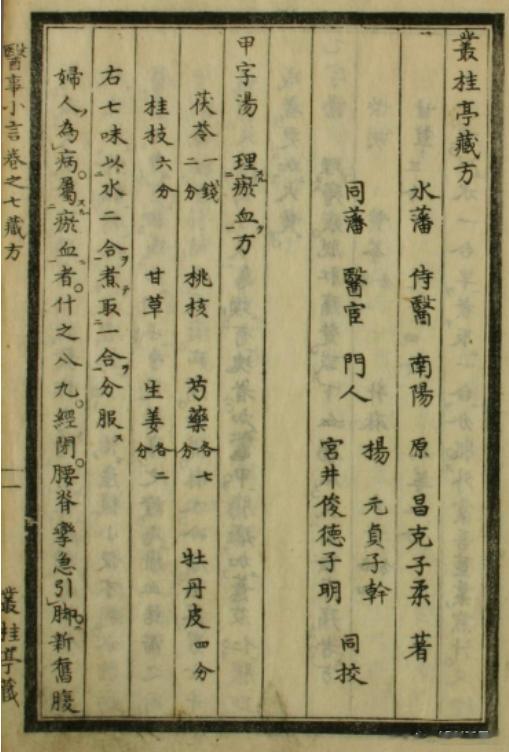 叢桂亭藏方
水藩 侍醫 南陽 原 昌克子柔 著
同藩 醫官 門人 楊 元貞子幹
宮井俊德子明 同挍
甲字湯 理瘀血方
茯苓一錢二分 桃核 芍藥各七分 牡丹皮四分
桂枝六分 甘草 生姜各二分
右七味以水二合煮取一合分服ス
婦人為病屬瘀血者。什之八九經閉。腰脊攣急引脚。新舊腹
醫事小言卷之七藏方 一 叢桂亭藏